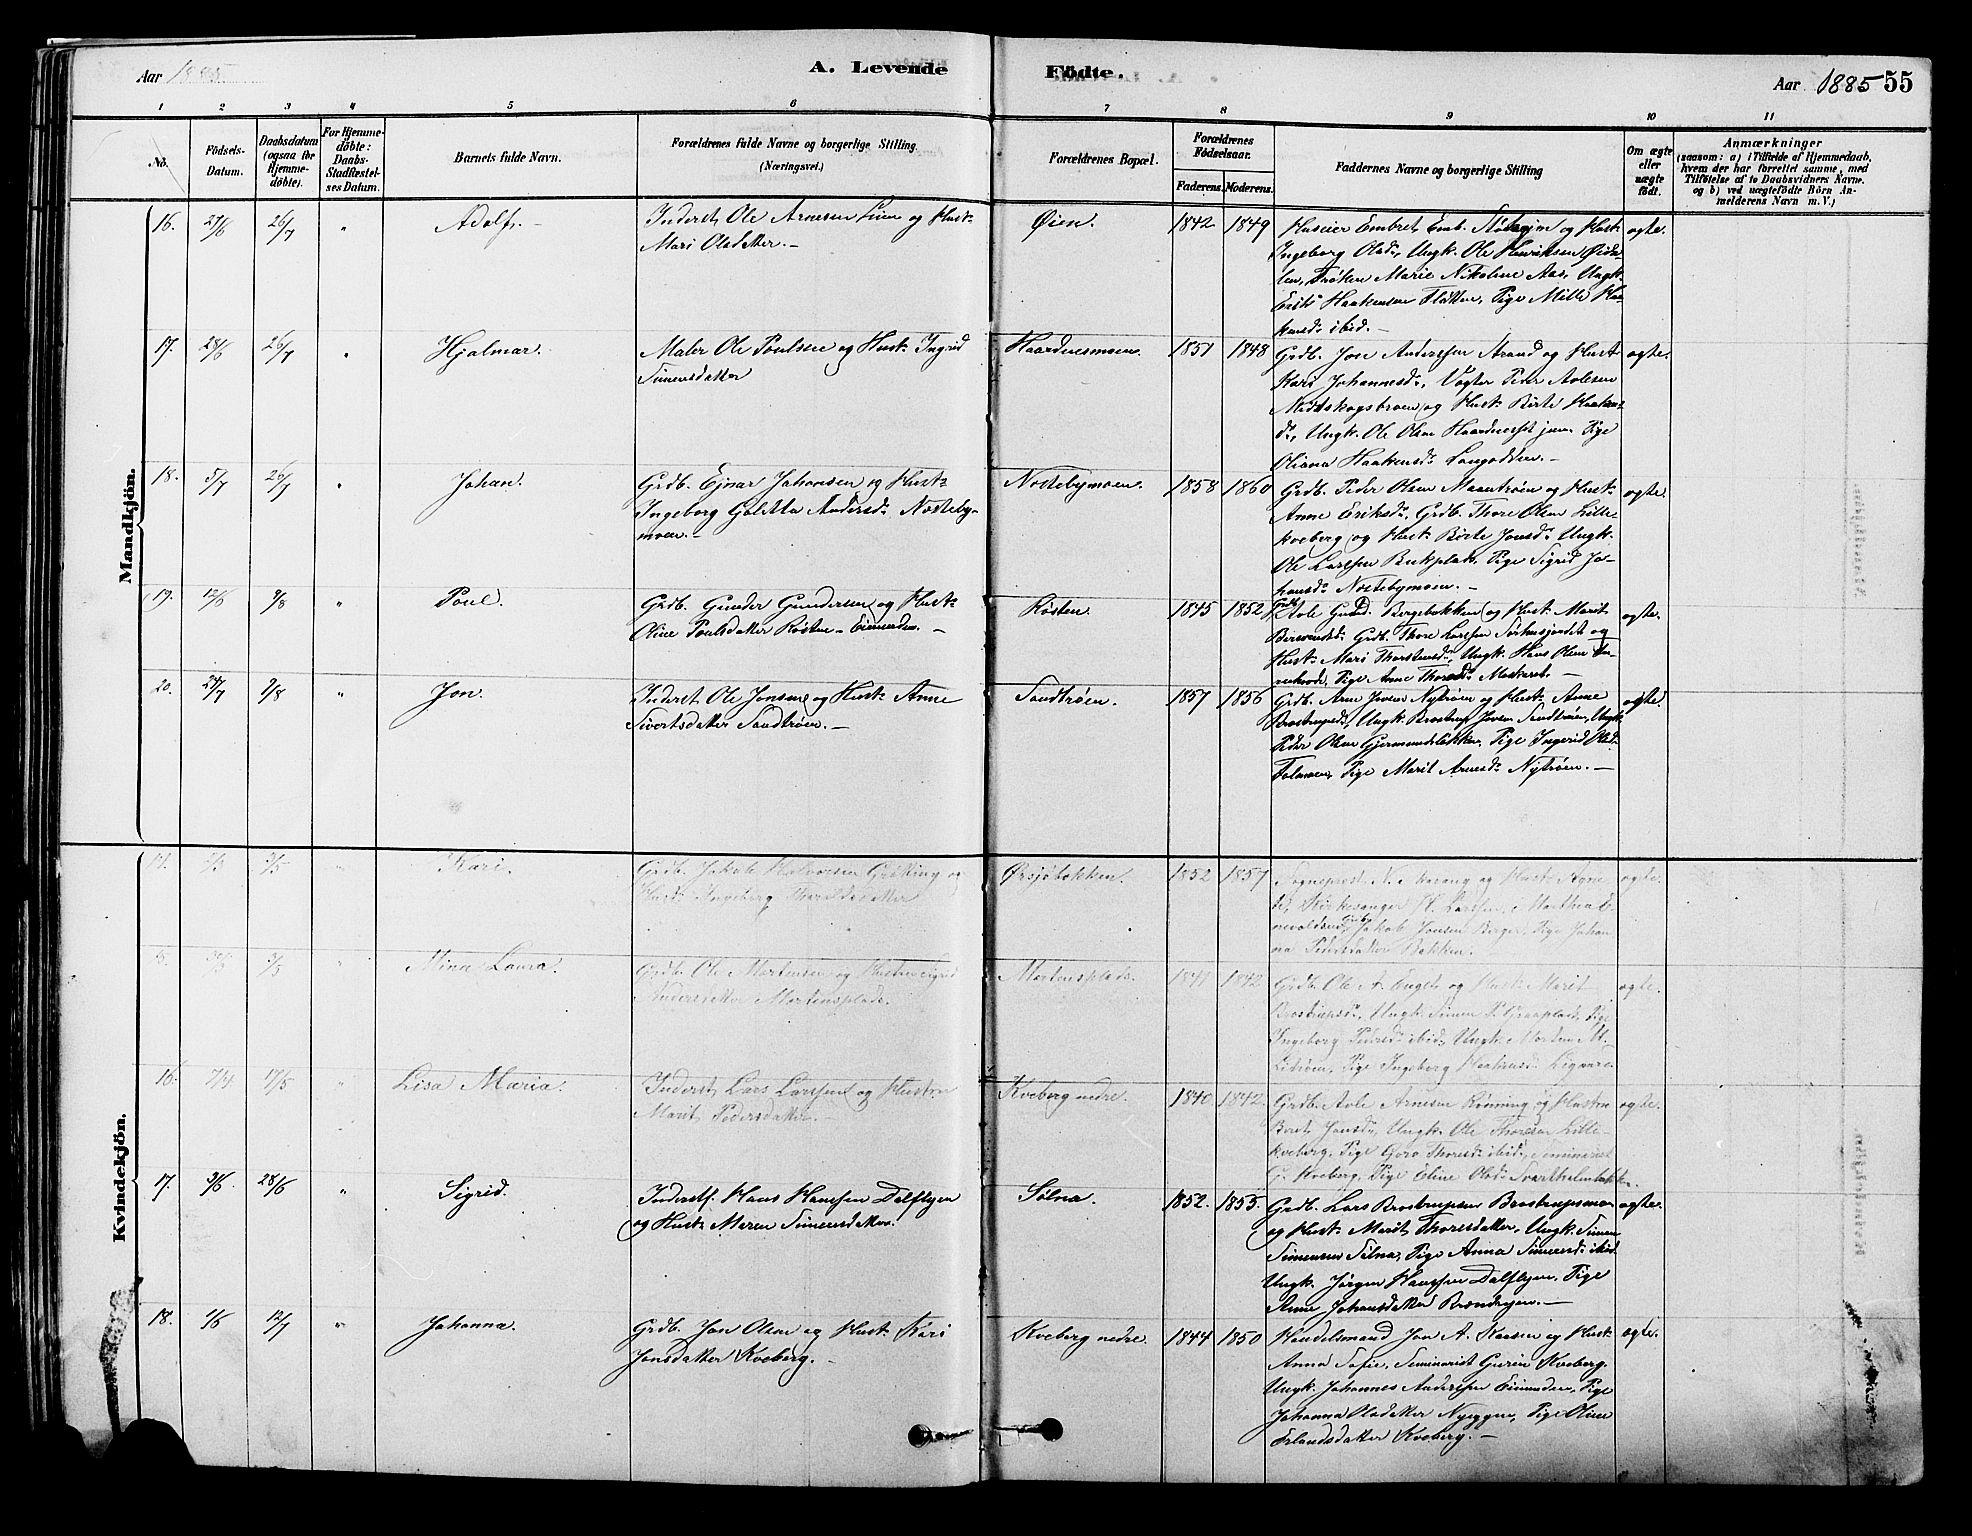 Aar 1885
A. Levende
Födte.
Aar 1885 55
1 2 3 4 5 6 7 8 9 10 11
No.
Födsels-
Datum.
Daabsdatum
(ogsaa for
Hjemme-
døbte).
For Hjemme-
døbte:
Daabs-
Stadfæstel-
ses Datum.
Barnets fulde Navn.
Forældrenes fulde Navne og borgerlige Stilling.
(Næringsvei.)
Forældrenes Bopæl.
Forældrenes
Födselsaar.
Faderens. Moderens.
Faddernes Navne og borgerlige Stilling
Om ægte
eller
uægte
født.
Anmærkninger
(saasom: a) i Tilfælde af Hjemmedaab,
hvem der har forrettet samme, med
Tilføielse af to Daabsvidners Navne.
og b) ved uægtefödte Börn An-
melderens Navn m. V.)
Mandkjön.
16. 27/6 26/7 " Adolf.
Inderst Ole Arnesen Lien og Hust:
Mari Olsdatter.—
Øien. 1842 1849
Huseier Embret Emb. og Hust:
Ingeborg Olsd:, Ungk. Ole Henriksen Øida-
len, Frøken Marie Nikoline Aas, Ungk.
Erik Haakensen Fløtten, Pige Mille Haa-
kensd: ibid.—
ægte.
17. 28/6 26/7 " Hjalmar.
Maler Ole Poulsen og Hust: Ingrid
Simensdatter
Haardnesmoen. 1851 1848
Grdb. Jon Anderssen Strand og Hust
Kari Johannesd:, Vogter Peder Avlesen
Midtskogsbroen og Hust: Birte Haaken-
sd:, Ungk. Ole Olsen Haardnesset jun. Pige
Oliana Haakensd: Langodden.—
ægte.
18. 5/7 26/7 " Johan.
Grdb. Ejnar Johansen og Hust:
Ingeborg Goletta Andersd: Nosteby-
moen.—
Nostebymoen. 1858 1860
Grdb. Peder Olsen Maantrøen og Hust:
Anne Eriksd:, Grdb. Thore Olsen Lille-
kveberg og Hust: Birte Jonsd: Ungk.
Ole Larssen Bækplads, Pige Sigrid Jo-
hansd: Nostebymoen.—
ægte.
19. 12/6 9/8 " Poul.
Grdb. Gunder Gundersen og Hust:
Oline Poulsdatter Røsten—Eimunden.—
Røsten. 1845 1852
Grdb. Avle Gund. Bergebakken og Hust: Marit
Grdb. Thore Larssen og
Hust: Mari Thorstensd:, Ungk. Hans Olsen
Pige Anne Thoresd:
ægte.
20. 24/7 9/8 " Jon.
Inderst Ole Jonsen og Hust: Anne
Sivertsdatter Sandtrøen.—
Sandtrøen. 1857 1856
Grdb. Arne Jonsen Nytrøen og Hust: Anne
Brostrupsd:, Ungk. Brostrup Jonsen Sandtrøen, Ungk.
Peder Olsen Gjermundsbakken, Pige Ingerid Olsd:
Pige Marit Arnesd: Nytrøen.—
ægte.
Kvindekjön.
14. 3/5 " Kari.
Grdb. Jakob Halvorsen Grøtting og
Hust: Ingeborg Thoraldsdatter
Ørsjøbakken. 1852 1857
Sogneprest og Hust: Agne-
te, Kirkesanger H. Larssen, Marthea E-
nevoldsen, Grdb. Jakob Jonsen Berger, Pige Johan-
na Pedersdatter Bakken.
ægte.
15. 3/5 " Mina Laura.
Grdb. Ole Mortensen og Hustru Sigrid
Andersdatter Mortensplads.
Mortensplads. 1841 1842
Grdb. Ole A. Enget og Hust: Marit
Brostrupsd:, Ungk. Simen P. Graaplads, Pige
Ingeborg Pedersd: ibid., Ungk. Morten M.
Pige Ingeborg Haakensd:
ægte.
16. 7/4 17/5 " Lisa Maria.
Inderst Lars Larssen og Hustru
Marit Pedersdatter.—
Kveberg nedre. 1840 1842.
Grdb. Avle Arnesen Rønning og Hustru
Berit Jonsd:, Ungk. Ole Thoresen Lille-
kveberg, Pige Goro Thoresd: ibid., Seminarist
G. Kveberg, Pige Eline Olsd: Svartholmbakke.
ægte.
17. 3/6. 28/6 " Sigrid.
Inderst. Hans Hanssen Dalflyen
og Hust: Maren Simensdatter.
Sølna. 1852. 1855.
Grdb. Lars Brostrupsen Brostrupsmoen
og Hust: Marit Thoresdatter, Ungk. Simen
Simensen Sølna, Pige Anna Simensd: ibid.
Ungk. Jørgen Hanssen Dalflyen, Pige
Anne Johansdatter Brændryen.—
ægte.
18. 1/6 12/7 " Johanna.
Grdb. Jon Olsen og Hust: Kari
Jonsdatter Kveberg.—
Kveberg nedre. 1844 1850
Handelsmand Jon A. Kaasen og Hust:
Anna Sofie, Seminarist Gurin Kveberg.
Ungk. Johannes Anderssen Eimunden, Pige
Johanna Olsdatter Nyeggen, Pige Oline
Erlandsdatter Kveberg.—
ægte.